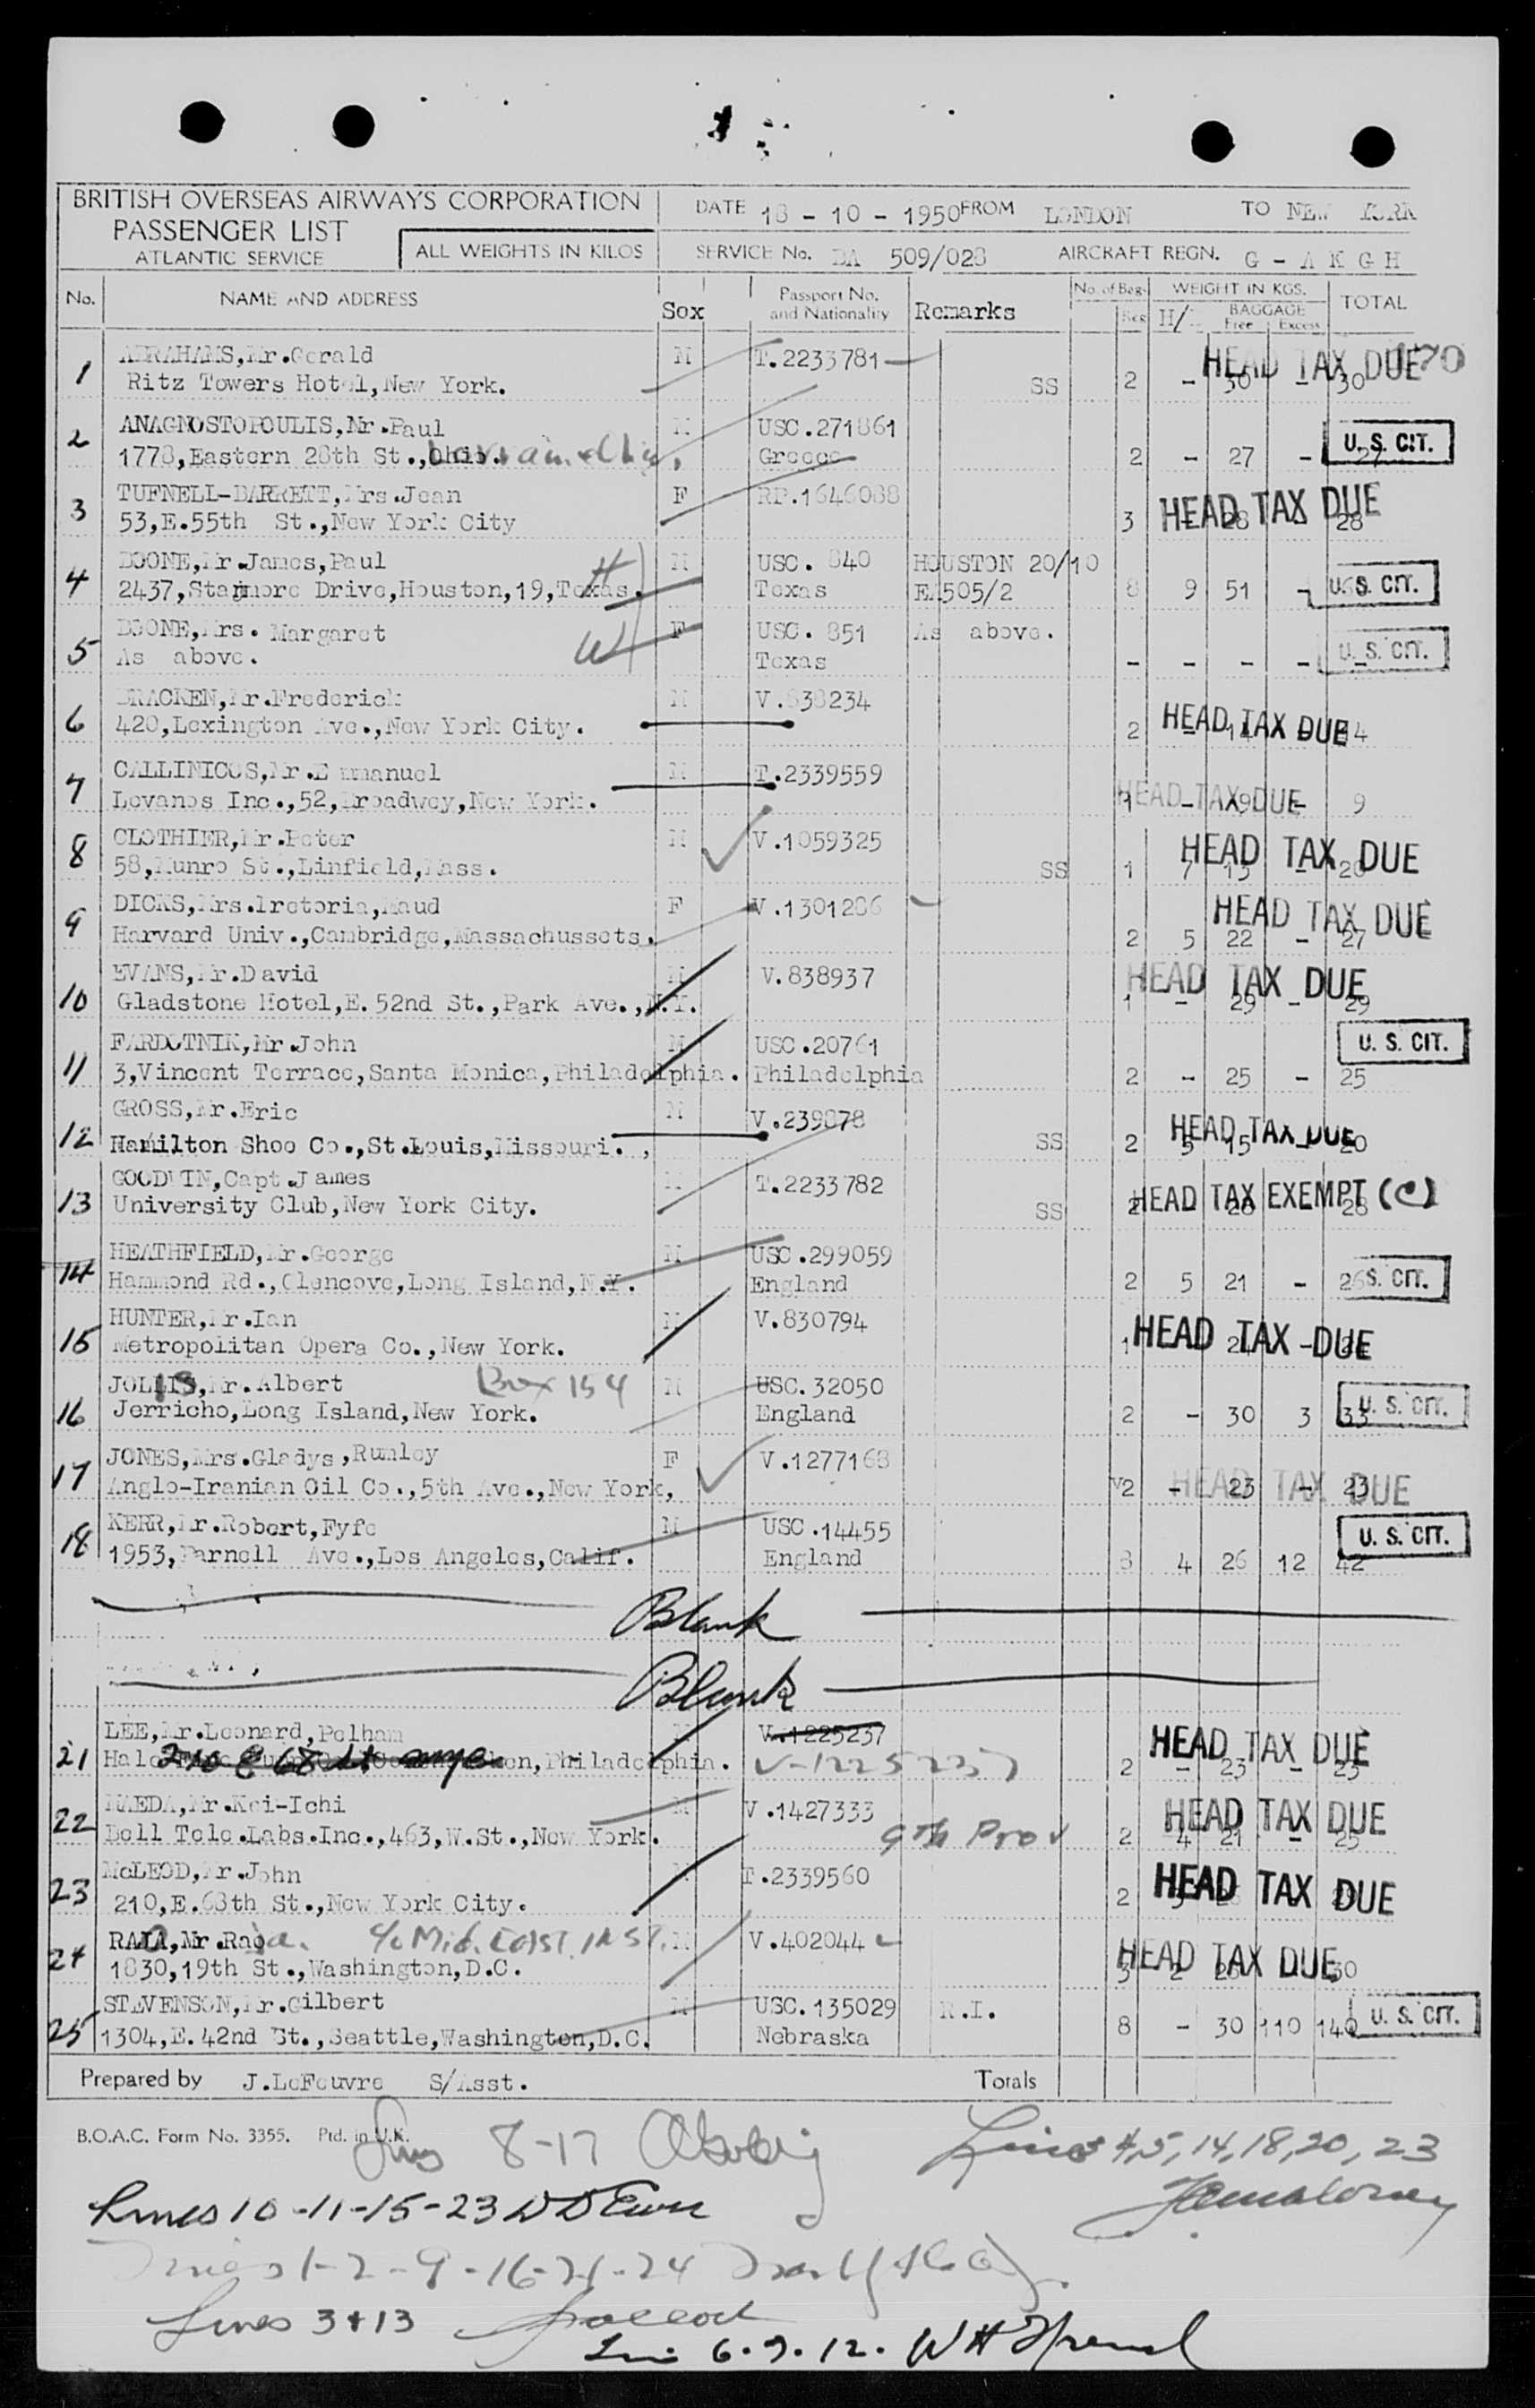 BRITISH OVERSEAS AIRWAYS CORPORATION
PASSENGER LIST
ATLANTIC SERVICE
ALL WEIGHTS IN KILOS
DATE 18 - 10 - 1950 FROM LONDON TO NEW YORK
SERVICE No. BA 509/028 AIRCRAFT REGN. G - A K G H
No. NAME AND ADDRESS Sex Passport No. and Nationality Remarks No. of Bags Reg H/ WEIGHT IN KGS. BAGGAGE Free Excess TOTAL
1 ABRAHAMS,Mr.Gerald M T.2233781 HEAD TAX DUE
Ritz Towers Hotel,New York. SS 2 - 30 - 30
2 ANAGNOSTOPOULIS,Mr.Paul M USC.271861 U. S. CIT.
1778,Eastern 28th St.,Ohio. Greece 2 - 27 - 27
3 TUFNELL-BARRETT,Mrs.Jean F RP.1646088 HEAD TAX DUE
53,E.55th St.,New York City 3 - 28 - 28
4 BOONE,Mr.James,Paul M USC. 840 HOUSTON 20/10
2437,Stanmore Drive,Houston,19,Texas. H Texas EA505/2 8 9 51 - U. S. CIT.
5 BOONE,Mrs. Margaret F USC. 851 As above.
As above. W Texas - - - - - U. S. CIT.
6 BRACKEN,Mr.Frederick M V.838234
420,Lexington Ave.,New York City. 2 - 14 - 14 HEAD TAX DUE
7 CALLINICOS,Mr.Emmanuel M T.2339559
Lovanos Inc.,52,Broadwey,New York. 1 - 9 - 9 HEAD TAX DUE
8 CLOTHIER,Mr.Peter M V.1059325 HEAD TAX DUE
58,Munro St.,Linfield,Mass. SS 1 7 13 - 20
9 DICKS,Mrs.Iretoria,Maud F V.1301286 HEAD TAX DUE
Harvard Univ.,Cambridge,Massachussets. 2 5 22 - 27
10 EVANS,Mr.David M V.838937 HEAD TAX DUE
Gladstone Hotel,E.52nd St.,Park Ave.,N.Y. 1 - 29 - 29
11 FARDOTNIK,Mr.John M USC.20761 U. S. CIT.
3,Vincent Terrace,Santa Monica,Philadelphia. Philadelphia 2 - 25 - 25
12 GROSS,Mr.Eric M V.239878 HEAD TAX DUE
Hamilton Shoe Co.,St.Louis,Missouri. , SS 2 5 15 - 20
13 GOODWIN,Capt.James M T.2233782 HEAD TAX EXEMPT (C)
University Club,New York City. SS 2 - 28 - 28
14 HEATHFIELD,Mr.George M USC.299059
Hammond Rd.,Glencove,Long Island,N.Y. England 2 5 21 - 26 S. CIT.
15 HUNTER,Mr.Ian M V.830794
Metropolitan Opera Co.,New York. 1 HEAD TAX DUE
16 JOLLIS,Mr.Albert Box 154 M USC.32050 U. S. CIT.
Jerricho,Long Island,New York. England 2 - 30 3 33
17 JONES,Mrs.Gladys,Rumley F V.1277168
Anglo-Iranian Oil Co.,5th Ave.,New York, 2 - 23 - 23 HEAD TAX DUE
18 KERR,Mr.Robert,Fyfe M USC.14455 U. S. CIT.
1953,Parnell Ave.,Los Angeles,Calif. England 8 4 26 12 42
Blank
Blank
21 LEE,Mr.Leonard,Pelham M V.1225237 HEAD TAX DUE
210 E 68 St nyc Philadelphia. V-1225237 2 - 23 - 23
22 MAEDA,Mr.Kei-Ichi M V.1427333 HEAD TAX DUE
Bell Tele.Labs.Inc.,463,W.St.,New York. 9th Prov 2 4 21 - 25
23 McLEOD,Mr.John M T.2339560 HEAD TAX DUE
210,E.68th St.,New York City. 2
24 Mr. c/o Mid. East. Inst. M V.402044 HEAD TAX DUE
1830,19th St.,Washington,D.C. 3 2 28 30
25 STEVENSON,Mr.Gilbert M USC.135029 R.I. U. S. CIT.
1304,E.42nd St.,Seattle,Washington,D.C. Nebraska 8 - 30 110 140
Prepared by J.LeFeuvre S/Asst. Totals
B.O.A.C. Form No. 3355. Ptd. in U.K.
Lines 8-17
Lines 4,5,14,18,20,23
Lines 10-11-15-23
Lines 1-2-9-16-21-24
Lines 3+13